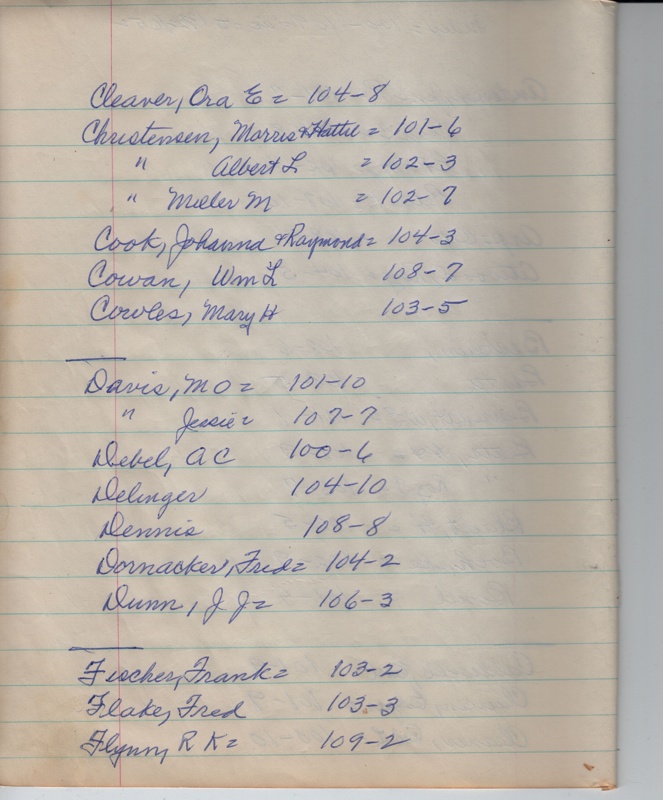 Cleaver, Ora E = 104-8
Christensen, Morris & Hattie = 101-6
" Albert L = 102-3
" Miller M = 102-7
Cook, Johanna & Raymond = 104-3
Cowan, Wm L 108-7
Cowles, Mary H 103-5
Davis, M O = 101-10
" Jessie = 107-7
Debel, A C 100-6
Delinger 104-10
Dennis 108-8
Dornacker, Fred = 104-2
Dunn, J J = 106-3
Fischer, Frank = 103-2
Flake, Fred 103-3
Flynn, R K = 109-2